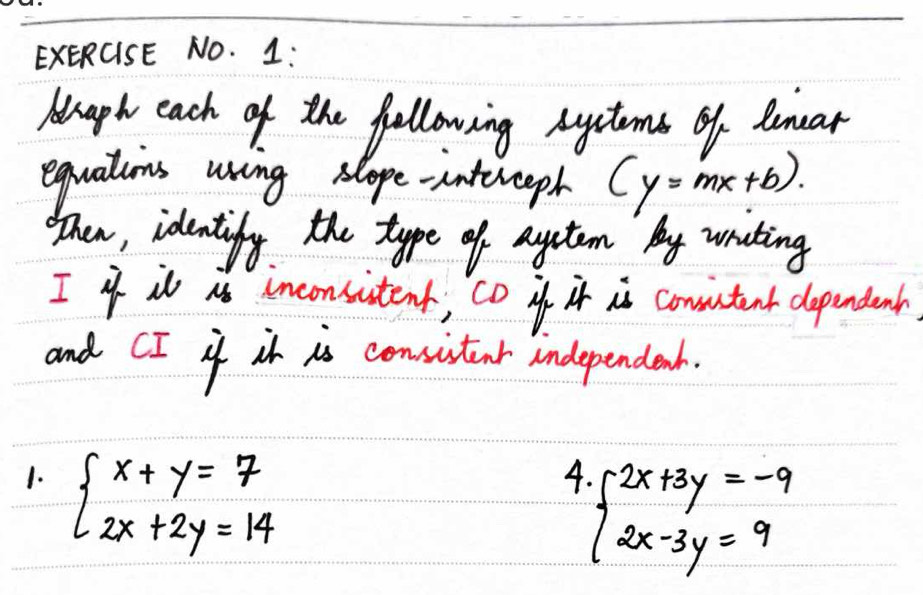 EXERCISE NO. 1:
Graph each of the following systems of linear
equations using slope-intercept (y = mx + b).
Then, identify the type of system by writing
I if it is inconsistent, CD if it is consistent dependent,
and CI if it is consistent independent.
1. { x + y = 7
2x + 2y = 14
4. { 2x + 3y = -9
2x - 3y = 9